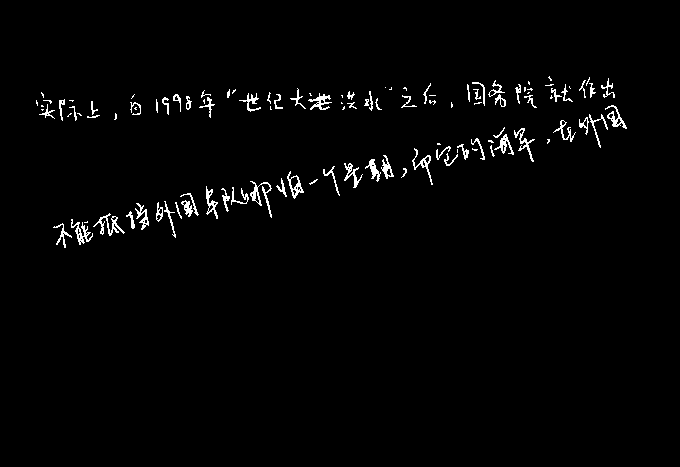 实际上，自1998年“世纪大港洪水”之后，国务院就作出
不能抵挡外国军队哪怕一个星期，而它的海军，在外国